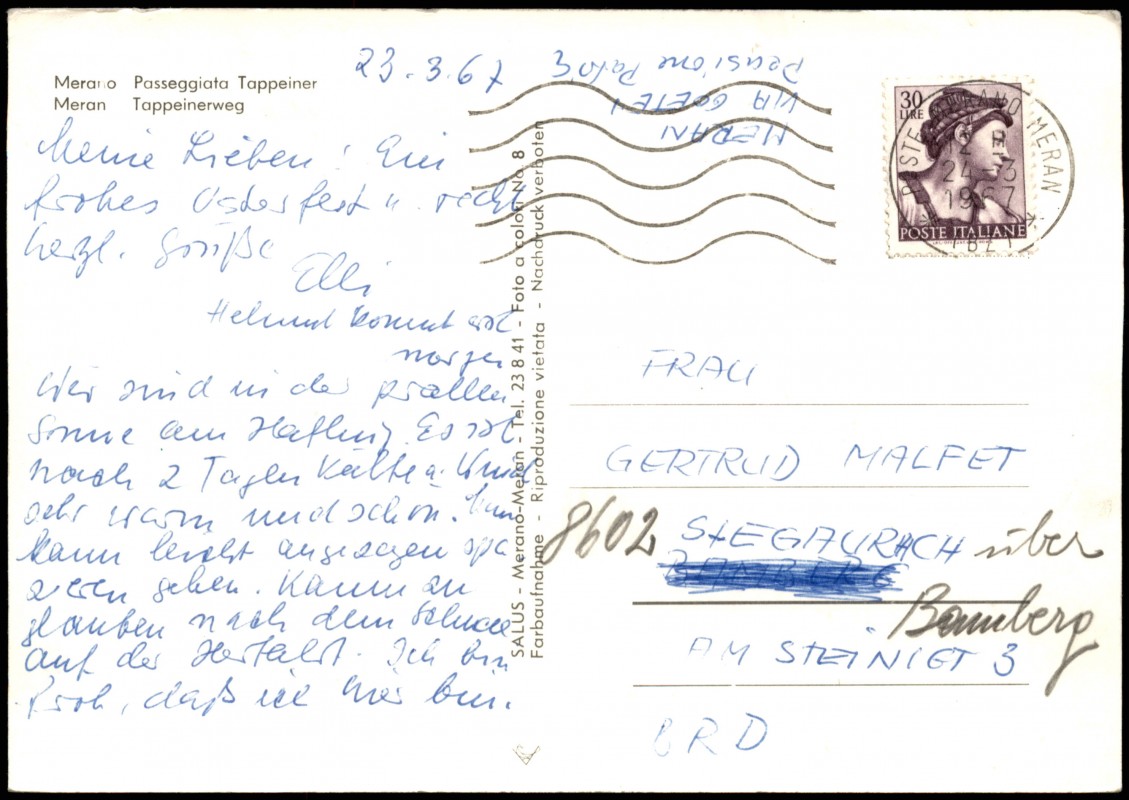 Merano Passeggiata Tappeiner
Meran Tappeinerweg
23.3.67
Pensione
VIA GOETE 1
MERAN
Meine Lieben! Ein
frohes Osterfest u. recht
herzl. Grüße
Elli
Helmut kommt erst
morgen
Wir sind in der prallen
Sonne am Hafling. Es ist
nach 2 Tagen Kälte u. Wind
sehr warm und schön. Man
kann leicht angezogen spa
zieren gehen. Kaum zu
glauben nach dem Schnee
auf der Hinfahrt. Ich bin
froh, daß ich hier bin.
SALUS - Merano-Meran - Tel. 23 8 41 - Foto a colori No. 8
Farbaufnahme - Riproduzione vietata - Nachdruck verboten
30
LIRE
POSTE ITALIANE
MERANO MERAN
24.3
1967
FRAU
GERTRUD MALFET
8602 STEGAURACH über
BAMBERG
Bamberg
AM STEINIGT 3
BRD